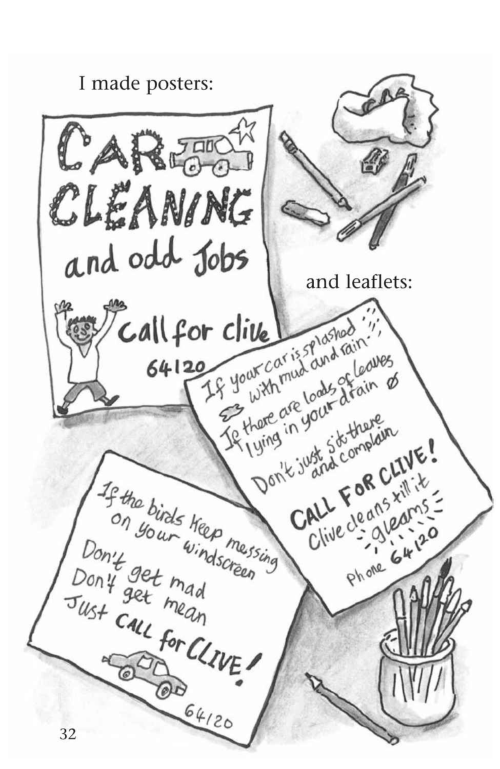 I made posters:
CAR
CLEANING
and odd Jobs
Call for clive
64120
and leaflets:
If your car is splashed
with mud and rain-
If there are loads of leaves
lying in your drain
Don't just sit there
and complain
CALL FOR CLIVE!
Clive cleans till it
gleams
Phone 64120
If the birds keep messing
on your windscreen
Don't get mad
Don't get mean
Just CALL for CLIVE!
64120
32